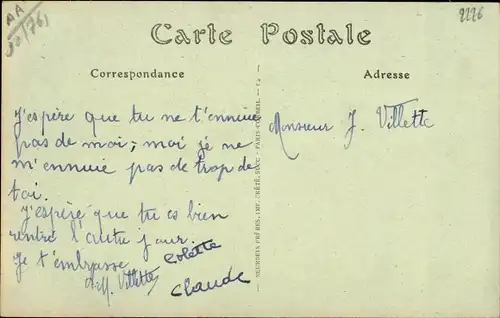 AA
2226
Carte Postale
Correspondance
Adresse
J'espère que tu ne t'ennuie
pas de moi; moi je ne
m'ennuie pas de trop de
toi.
J'espère que tu es bien
rentré l'autre jour.
Je t'embrasse
Colette
Villette
Claude
Monsieur J. Villette
NEURDEIN FRÈRES, IMP. CRÉTÉ, SUCC - PARIS-CORBEIL